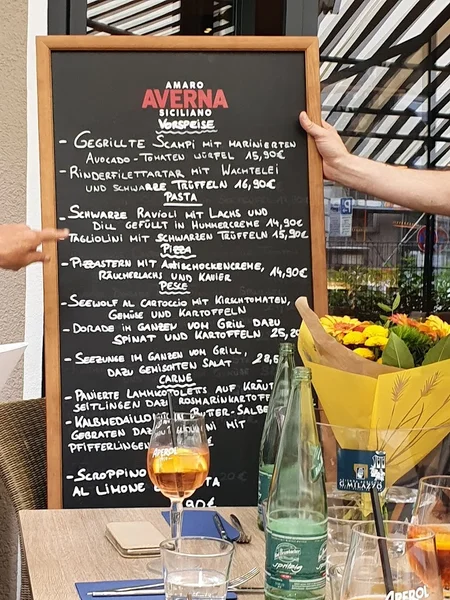 AMARO
AVERNA
SICILIANO
VORSPEISE
- GEGRILLTE SCAMPI MIT MARINIERTEN
AVOCADO-TOMATEN WÜRFEL 15,90€
- RINDERFILETTARTAR MIT WACHTELEI
UND SCHWARZE TRÜFFELN 16,90€
PASTA
- SCHWARZE RAVIOLI MIT LACHS UND
DILL GEFÜLLT IN HUMMERCREME 14,90€
TAGLIOLINI MIT SCHWARZEN TRÜFFELN 15,90€
PIZZA
- PIZZASTERN MIT ARTISCHOCKENCREME,
RÄUCHERLACHS UND KAVIER 14,90€
PESCE
- SEEWOLF AL CARTOCCIO MIT KIRSCHTOMATEN,
GEMÜSE UND KARTOFFELN
- DORADE IM GANZEN VOM GRILL DAZU
SPINAT UND KARTOFFELN 25,20
- SEEZUNGE IM GANZEN VOM GRILL,
DAZU GEMISCHTEN SALAT 28,5
CARNE
- PANIERTE LAMMKOTOLETTS AUF KRÄUT
SEITLINGEN DAZU ROSMARINKARTOFF
- KALBSMEDAILLO IN BUTTER-SALBE
GEBRATEN DAZU MIT
PFIFFERLING
- SCROPPINO TA
AL LIMONE 90€
APEROL
APEROL
spritzig